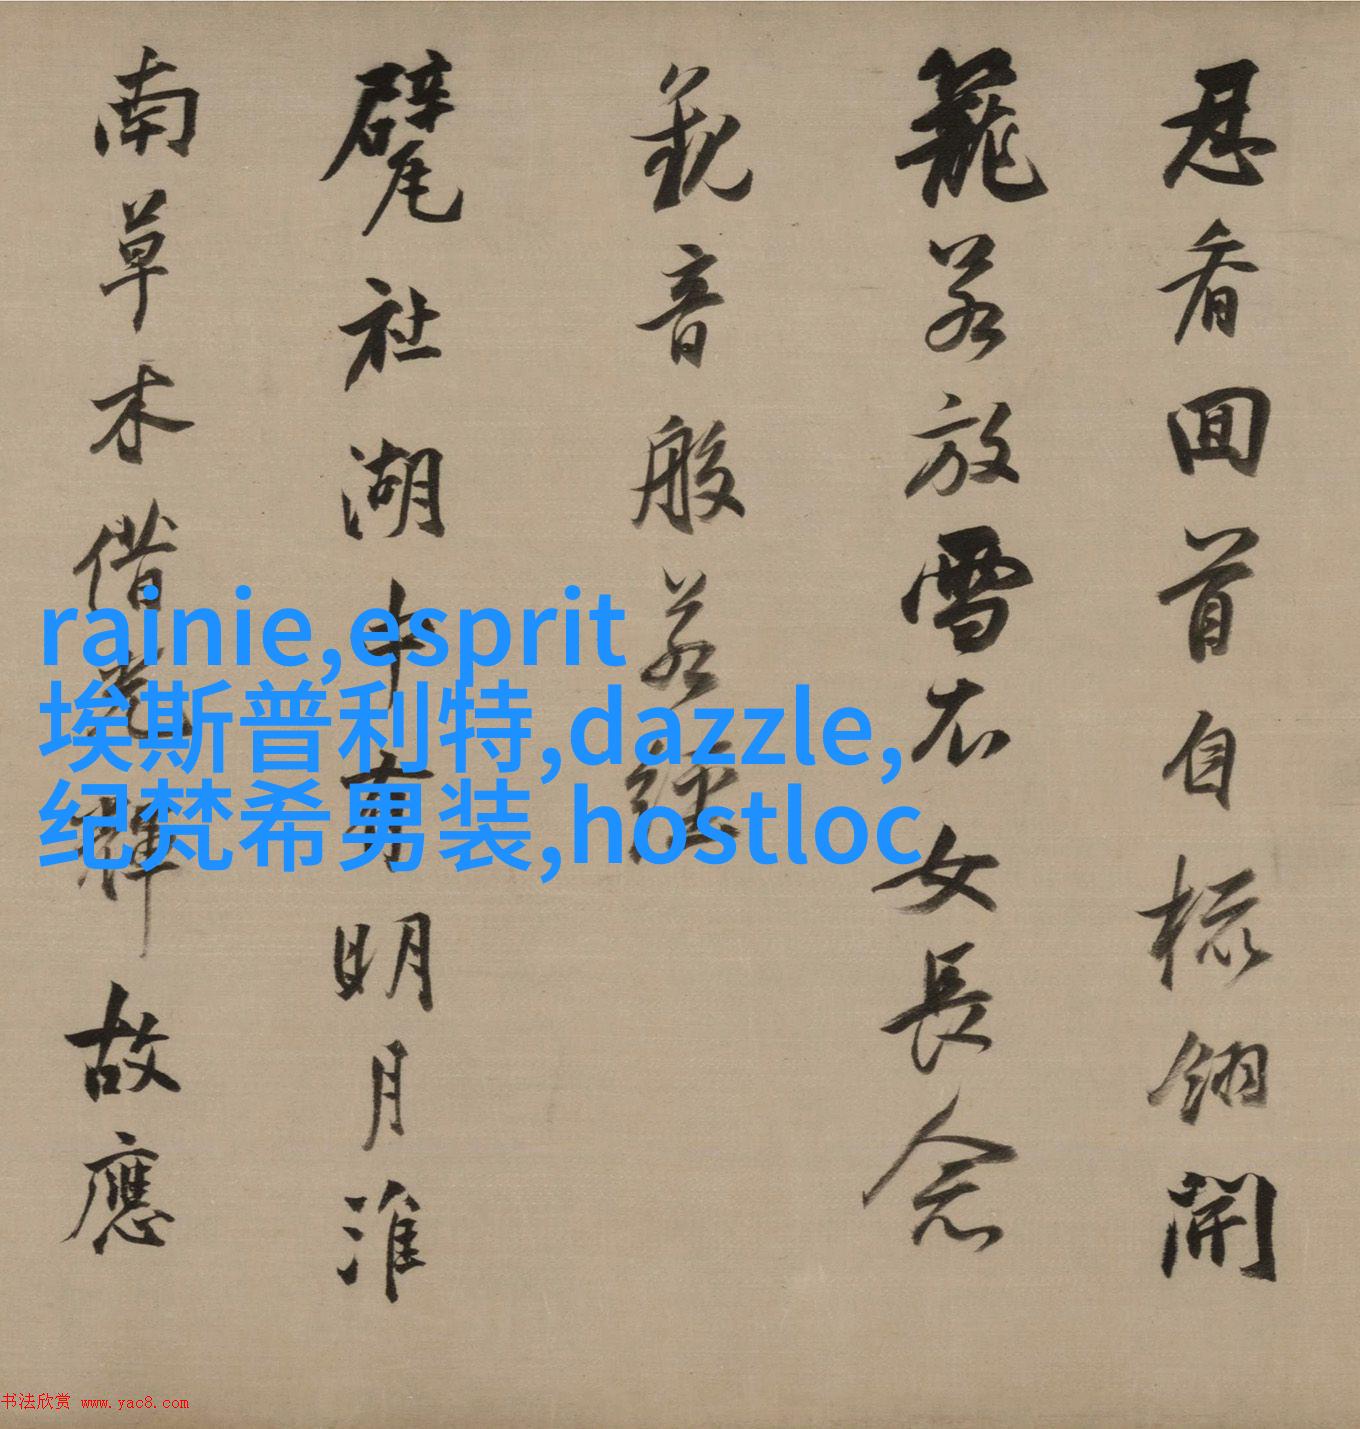 忍看囬首自梳翎開
籠若放雪衣女長念
觀音般若經
甓社湖中有明月淮
南草木借光輝故應
rainie,esprit
埃斯普利特,dazzle,
纪梵希男装,hostloc
书法欣赏 www.yac8.com